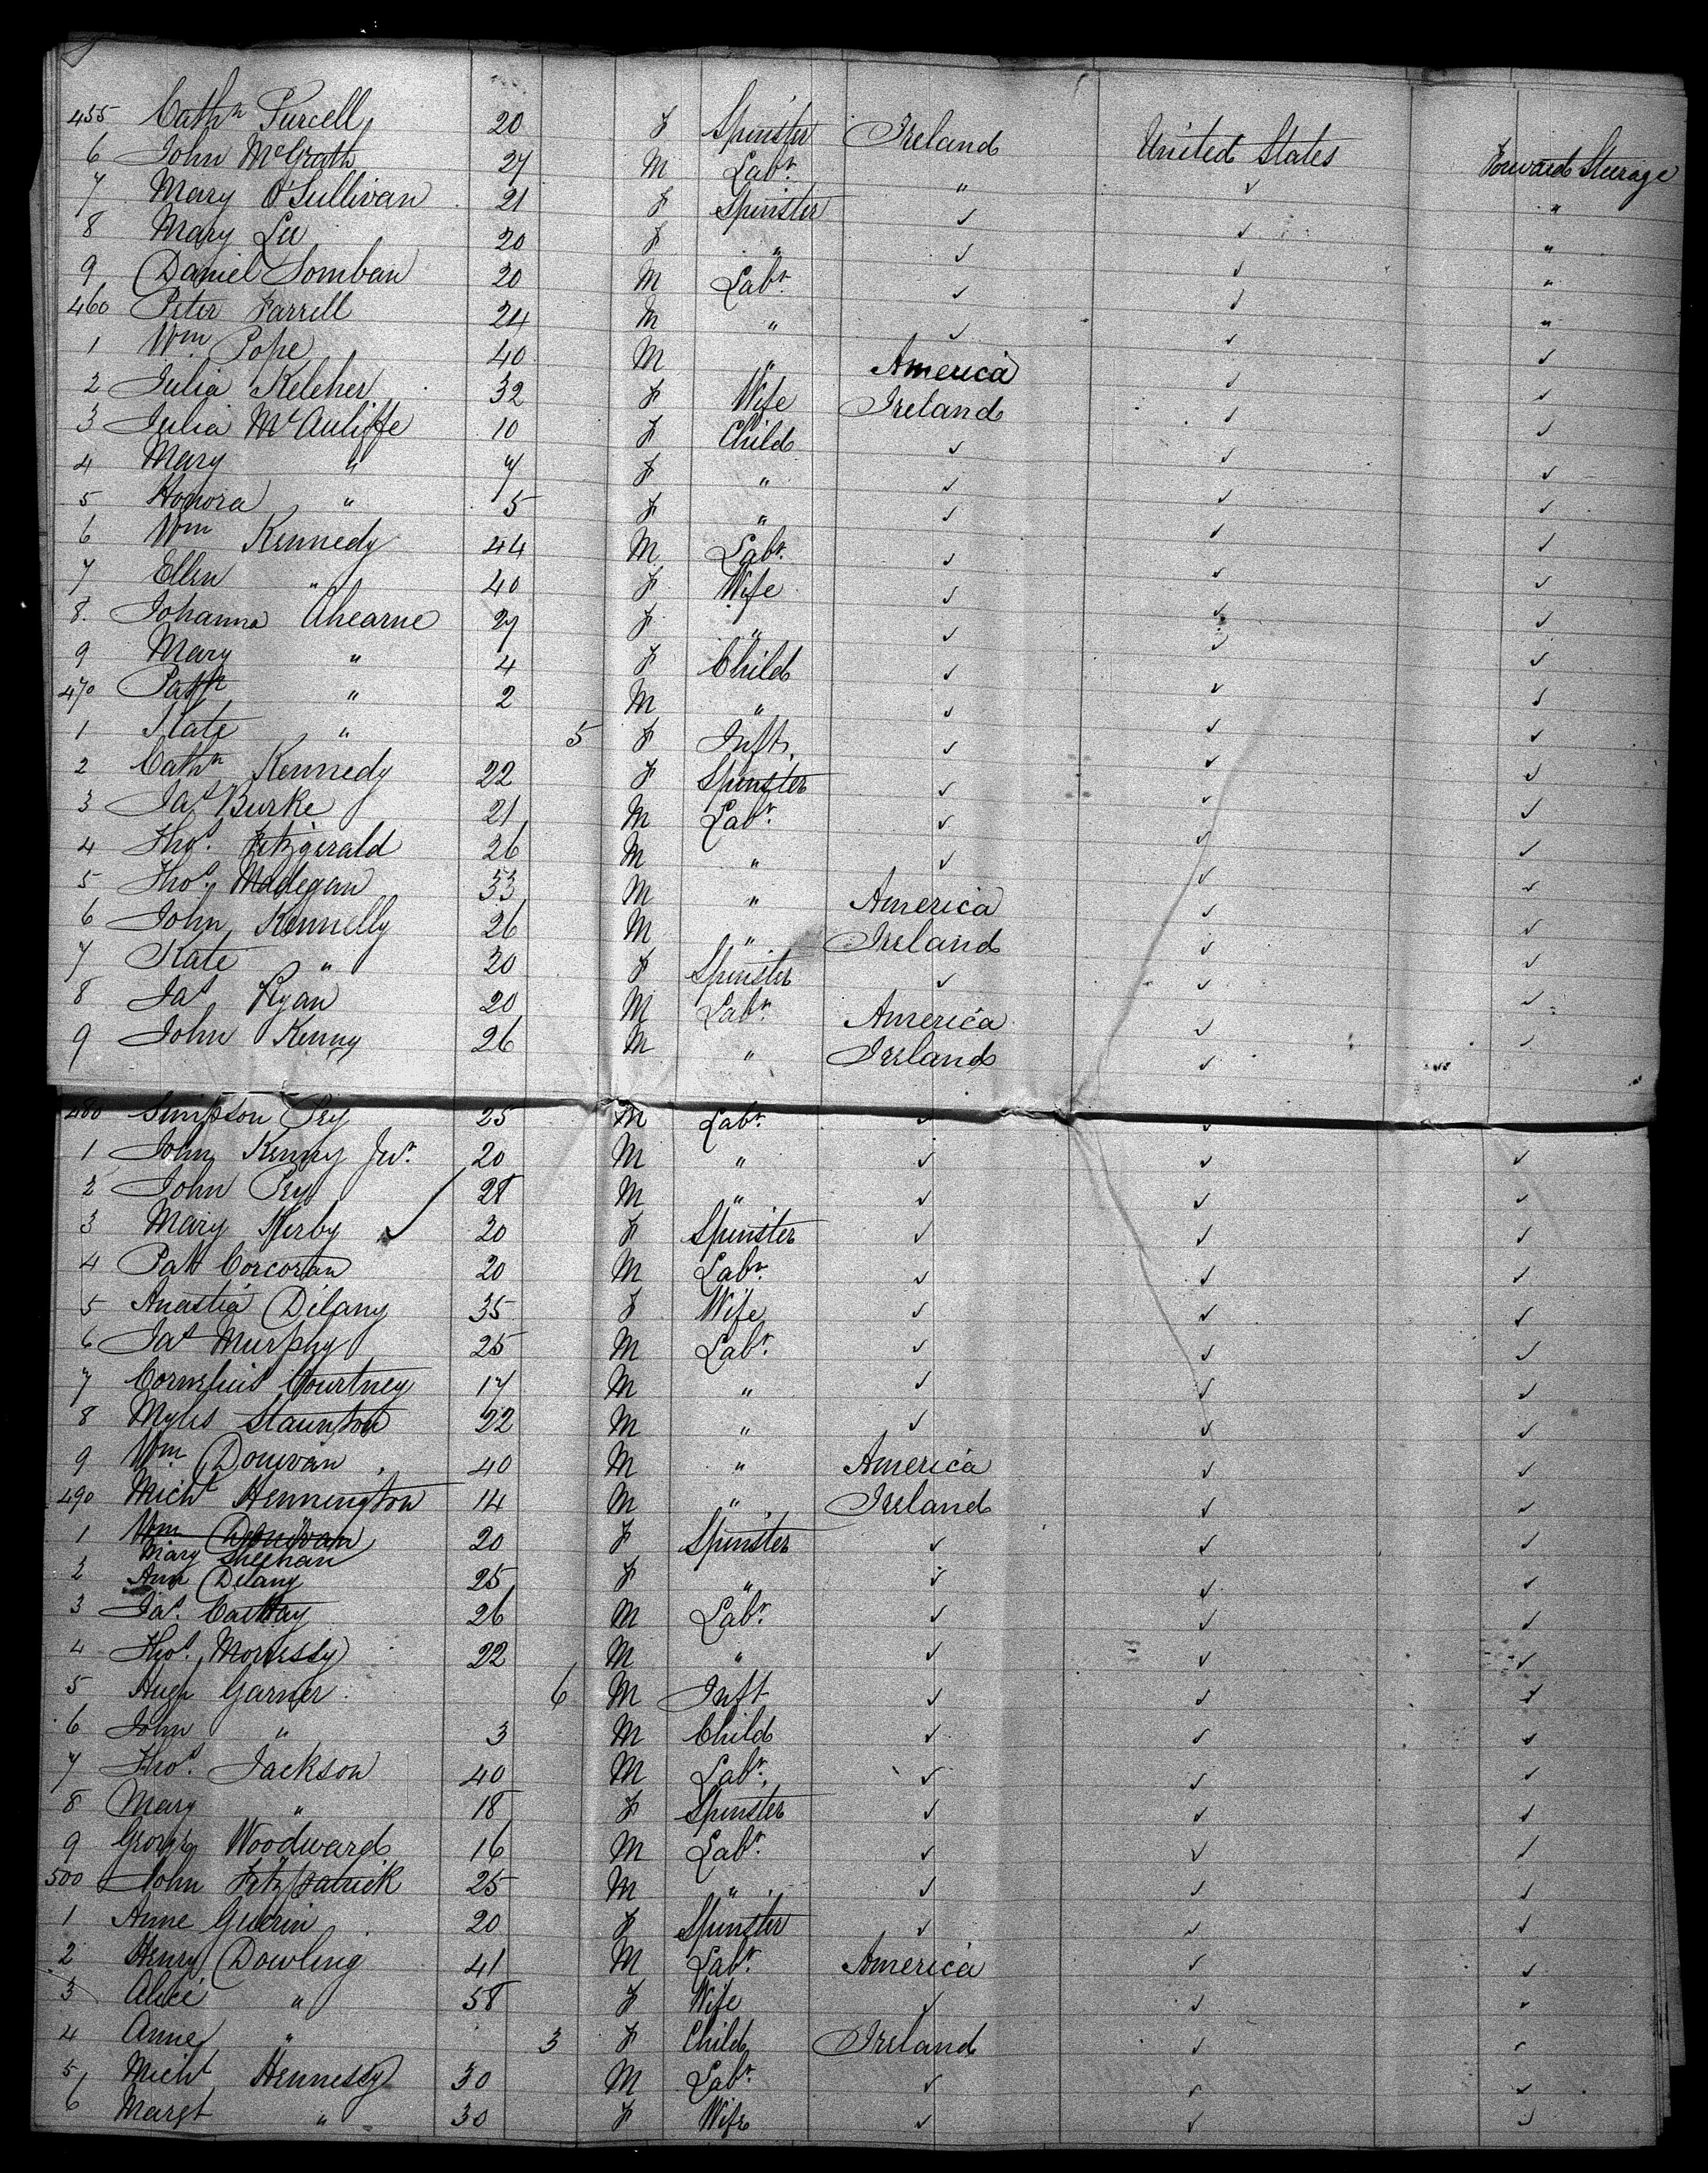 455 Cathn Purcell 20 F Spinster Ireland United States Forward Steerage
6 John McGrath 27 M Labr. " ✓ "
7 Mary O'Sullivan 21 F Spinster ✓ ✓ "
8 Mary Lee 20 F " ✓ ✓ "
9 Daniel Lomban 20 M Labr. ✓ ✓ "
460 Peter Farrell 24 M " ✓ ✓ ✓
1 Wm Pope 40 M " America ✓ ✓
2 Julia Keleher 32 F Wife Ireland ✓ ✓
3 Julia McAuliffe 10 F Child ✓ ✓ ✓
4 Mary " 7 F " ✓ ✓ ✓
5 Honora " 5 F " ✓ ✓ ✓
6 Wm Kennedy 44 M Labr. ✓ ✓ ✓
7 Ellen " 40 F Wife ✓ ✓ ✓
8. Johanna Ahearne 27 F " ✓ ✓ ✓
9 Mary " 4 F Child ✓ ✓ ✓
470 Patk " 2 M " ✓ ✓ ✓
1 Kate " 5 F Inft. ✓ ✓ ✓
2 Cathn Kennedy 22 F Spinster ✓ ✓ ✓
3 Jas Burke 21 M Labr. ✓ ✓ ✓
4 Thos. Fitzgerald 26 M " ✓ ✓ ✓
5 Thos. Madegan 33 M " America ✓ ✓
6 John Kennelly 26 M " Ireland ✓ ✓
7 Kate " 30 F Spinster ✓ ✓ ✓
8 Jas Ryan 20 M Labr. America ✓ ✓
9 John Kenny 26 M " Ireland ✓
480 Simpson Pey 25 M Labr. ✓ ✓
1 John Kenny Jur. 20 M " ✓ ✓ ✓
2 John Pey 28 M " ✓ ✓ ✓
3 Mary Kerby ✓ 30 F Spinster ✓ ✓ ✓
4 Pat Corcoran 20 M Labr. ✓ ✓ ✓
5 Anastia Dilany 35 F Wife ✓ ✓ ✓
6 Jas Murphy 25 M Labr. ✓ ✓ ✓
7 Cornelius Courtney 17 M " ✓ ✓ ✓
8 Myles Staunton 22 M " ✓ ✓ ✓
9 Wm Donivan 40 M " America ✓ ✓
490 Michl Hennington 14 M " Ireland ✓ ✓
1 Wm Donivan 20 F Spinster ✓ ✓ ✓
Mary Sheehan
2 Ann Delany 25 F " ✓ ✓ ✓
3 Jas. 26 M Labr. ✓ ✓ ✓
4 Thos. Morrissy 22 M " ✓ ✓ ✓
5 Hugh Garner 6 M Inft ✓ ✓ ✓
6 John " 3 M Child ✓ ✓ ✓
7 Thos. Jackson 40 M Labr. ✓ ✓ ✓
8 Mary " 18 F Spinster ✓ ✓ ✓
9 George Woodward 16 M Labr. ✓ ✓ ✓
500 John Fitzpatrick 25 M " ✓ ✓ ✓
1 Anne Guerin 20 F Spinster ✓ ✓ ✓
2 Henry Dowling 41 M Labr. America ✓ ✓
3 Alice " 58 F Wife ✓ ✓ ✓
4 Anne " 3 F Child Ireland ✓ ✓
5 Michl Hennessy 30 M Labr. ✓ ✓ ✓
6 Margt " 30 F Wife ✓ ✓ ✓